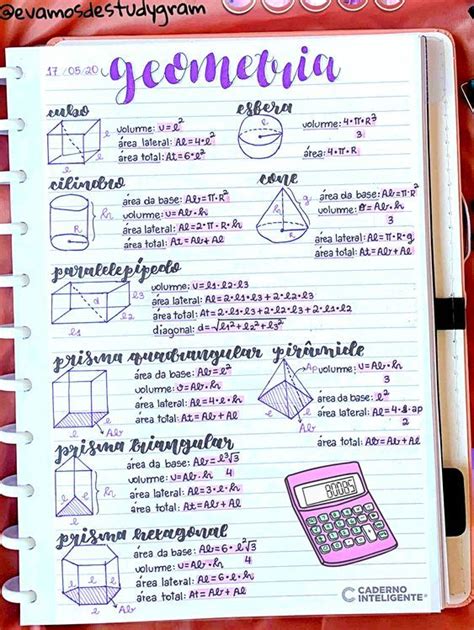 @evamosdestudygram
17/05/20
geometria
cubo
volume: v=l²
área lateral: Al=4·l²
área total: At=6·l²
esfera
R
volume: 4·π·R³
3
área: 4·π·R
cilindro
h
R
área da base: Ab=π·R²
volume: v=Ab·h
área lateral: Al=2·π·R·h
área total: At=Ab+Al
cone
g
h
R
área da base: Ab=π·R²
volume: v=Ab·h
3
área lateral: Al=π·R·g
área total: At=Ab+Al
paralelepípedo
d
l3
l2
l1
volume: v=l1·l2·l3
área lateral: Al=2·l1·l3+2·l2·l3
área total: At=2·l1·l3+2·l2·l3+2·l1·l2
diagonal: d=√l1²+l2²+l3²
prisma quadrangular
h
l
l
Ab
área da base: Ab=l²
volume: v=Ab·h
área lateral: Al=4·l·h
área total: At=Ab+Al
pirâmide
Ap
h
l
Ab
volume: v=Ab·h
3
área da base: l²
área lateral: Al=4·l·ap
2
área total: At=Ab+Al
prisma triangular
h
l
l
Ab
área da base: Ab=l²√3
4
volume: v=Ab·h
área lateral: Al=3·l·h
área total: At=Ab+Al
80085
prisma hexagonal
h
l
l
Ab
área da base: Ab=6·l²√3
4
volume: v=Ab·h
área lateral: Al=6·l·h
área total: At=Ab+Al
CADERNO
INTELIGENTE®